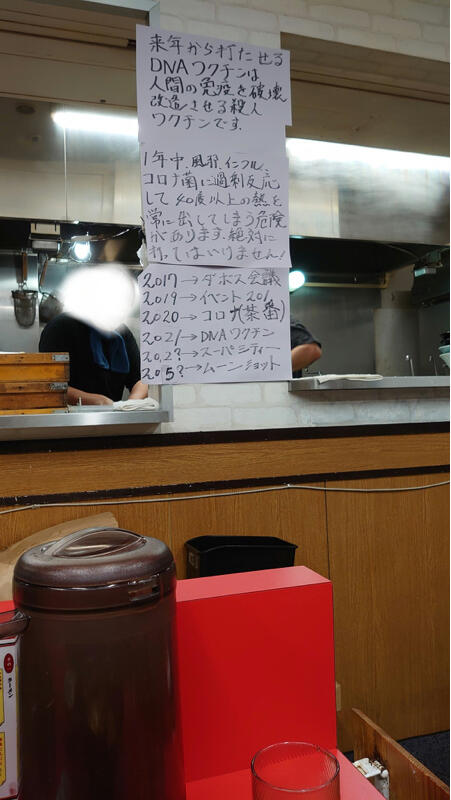 来年から打たせる
DNAワクチンは
人間の免疫を破壊
改造させる殺人
ワクチンです.
1年中.風邪.インフル
コロナ菌に過剰反応
して40度以上の熱を
常に出してしまう危険
があります.絶対に
打ってはいけません!
2017→ダボス会議
2019→イベント201
2020→コロナ(茶番)
2021→DNAワクチン
202?→スーパシティー
205?→ムーンショット